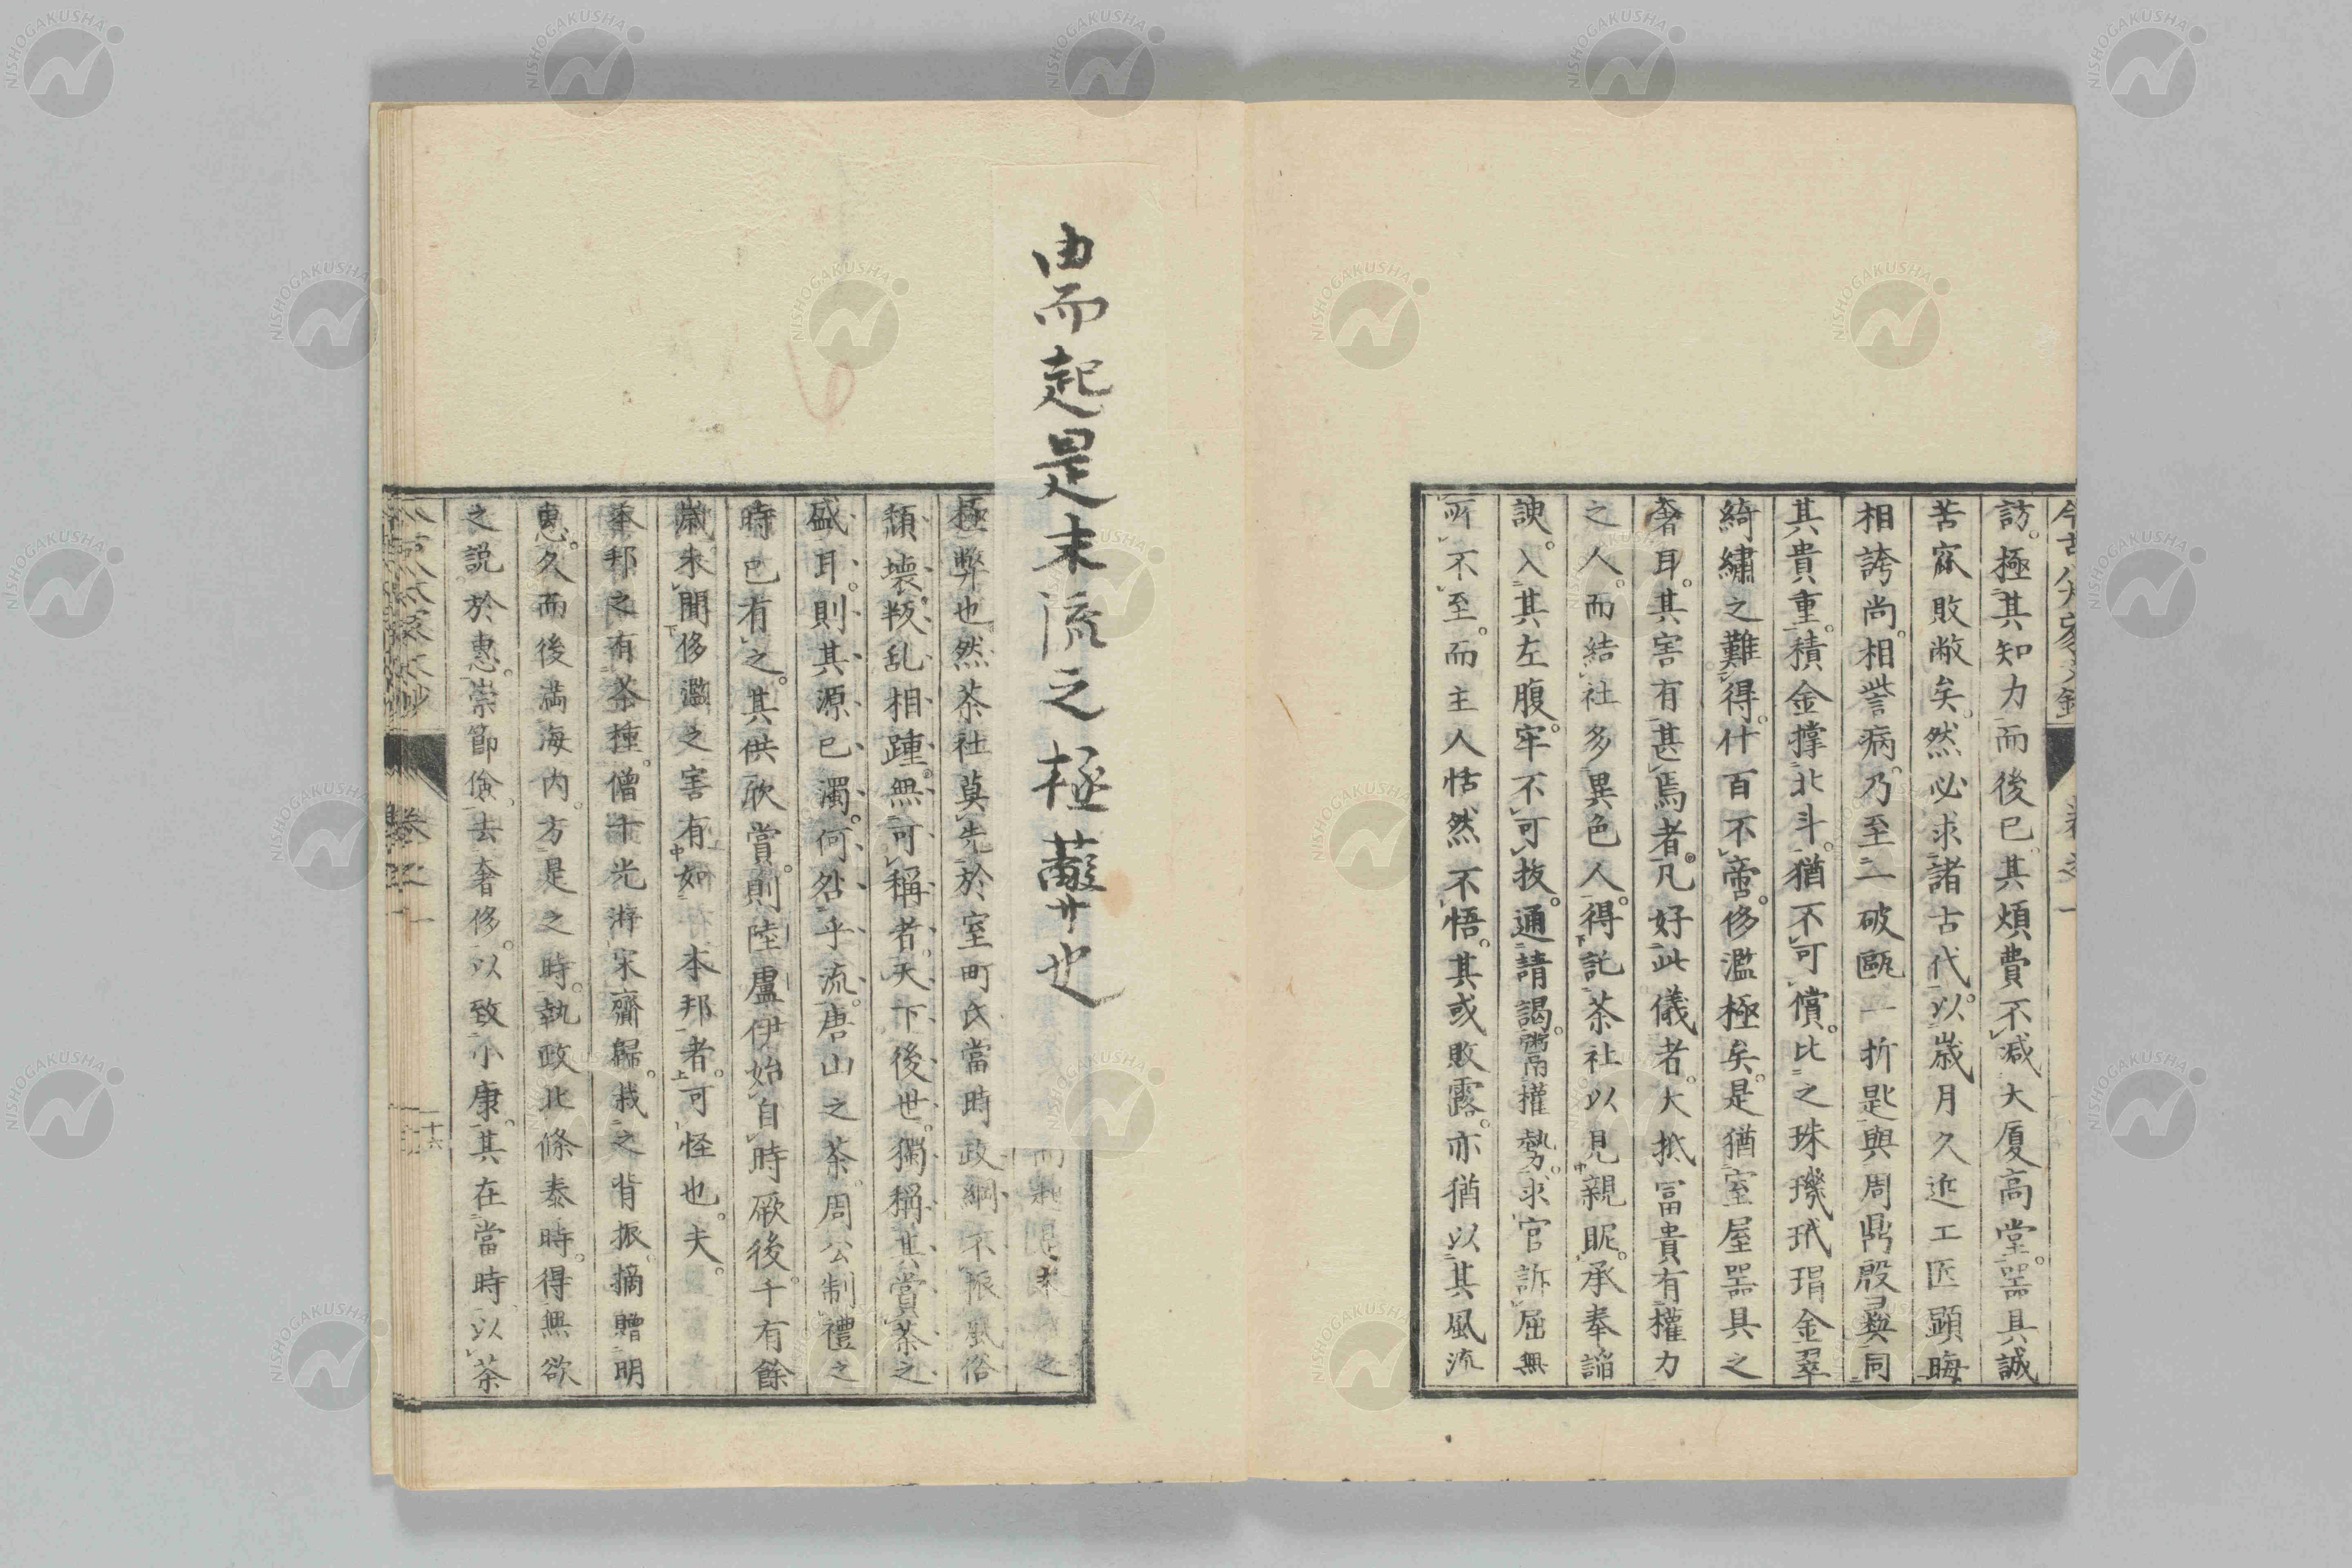 訪。極其知力而後已。其煩費不減大厦高堂。器具誠
苦窳敗敝矣。然必求諸古代。以歲月久近工匠顕晦
相誇尚。相訾病。乃至二一破甌一折匙與周鼎殷彝同
其貴重。積金撑北斗。猶不可償。比之珠璣玳瑁金翠
綺繡之難得。什百不啻。侈濫極矣。是猶室屋器具之
奢耳。其害有甚焉者。凡好此儀者。大抵富貴有權力
之人。而結社多異色人。得託茶社以見親昵。承奉諂
諛。入其左腹。牢不可拔。通請謁。鬻權勢。求官訴屈無
所不至。而主人恬然不悟。其或敗露。亦猶以其風流
由而起是末流之極蔽廾也
而起是末 之
極弊也然茶社莫先於室町氏當時政綱不振風俗
頽壞。叛乱相踵。無可稱者。天下後世。獨稱其賞茶之
盛耳。則其源已濁。何咎乎流。唐山之茶。周公制禮之
時已有之。其供欣賞。則陸盧伊始。自時厥後。千有餘
歲未聞侈濫之害有如 本邦者。可怪也。夫。
本邦之有茶種。僧千光游宋齎歸。栽之背振。摘贈明
惠。久而後満海内。方是之時。執政北條泰時。得無欲
之説於惠。崇節儉。去奢侈。以致小康。其在當時。以茶
卷之一
十六
NISHOGAKUSHA